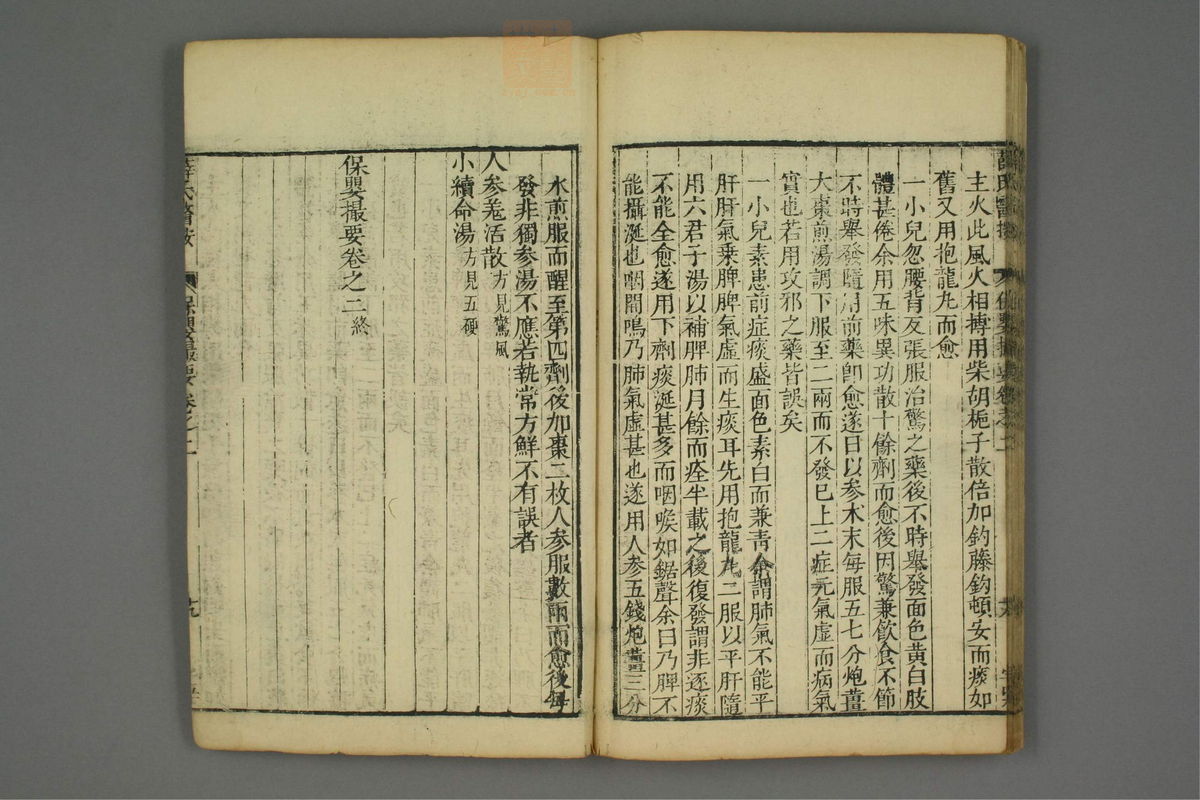 主火此風火相搏用柴胡梔子散倍加鈎藤鈎頓安而痰如
舊又用抱龍丸而愈
一小兒忽腰背反張服治驚之藥後不時舉發面色黃白肢
體甚倦余用五味異功散十餘劑而愈後因驚兼飲食不節
不時舉發隨用前藥即愈遂日以參木末每服五七分炮薑
大棗煎湯調下服至二兩而不發已上二症元氣虛而病氣
實也若用攻邪之藥皆誤矣
一小兒素患前症痰盛面色素白而兼青余謂肺氣不能平
肝肝氣乘脾脾氣虛而生痰耳先用抱龍丸二服以平肝隨
用六君子湯以補脾肺月餘而痊半載之後復發謂非逐痰
不能全愈遂用下劑痰涎甚多而咽喉如鋸聲余曰乃脾不
能攝涎也咽間鳴乃肺氣虛甚也遂用人參五錢炮薑三分
水煎服而醒至第四劑後加棗二枚人參服數兩而愈後每
發非獨參湯不應若執常方鮮不有誤者
人參羌活散方見驚風
小續命湯方見五硬
保嬰撮要卷之二終
薛氏醫按
保嬰撮要卷之二